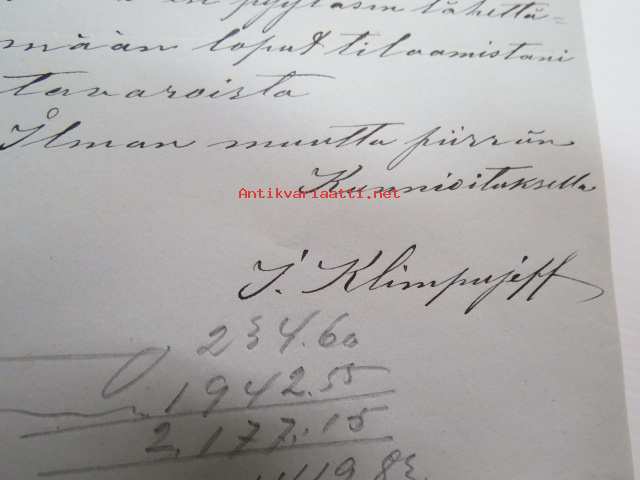 en pyytäsin lähettä=
mään loput tiloamistani
tavaroista
Ilman muutta piirrän
Kunnioituksella
Antikvariaatti.net
J. Klimpujeff
234.60
1942.55
2,177.15
119.83